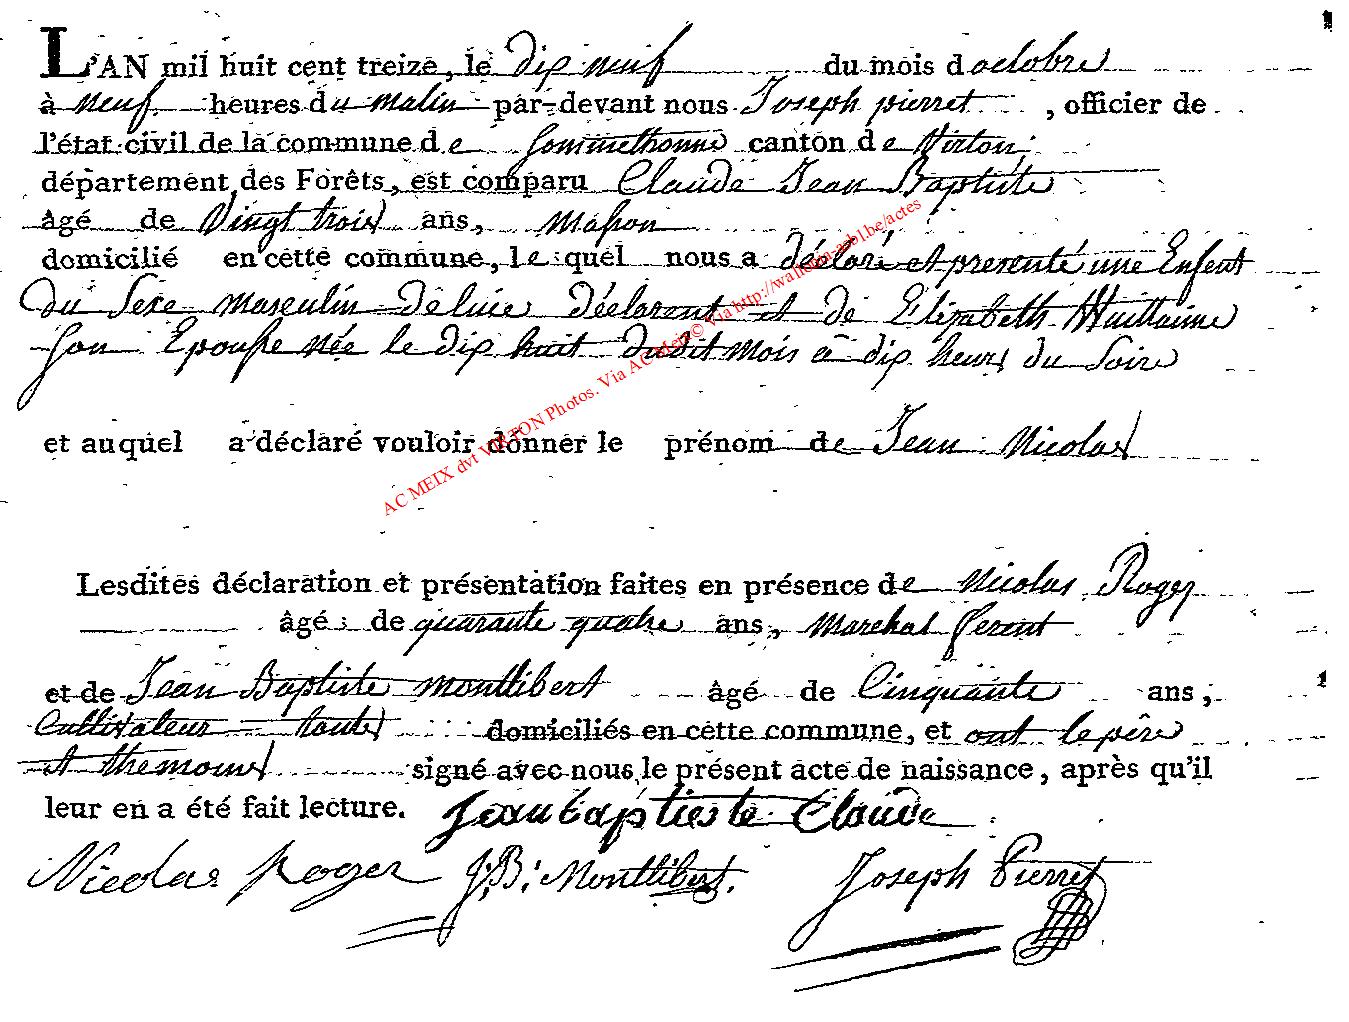 L'AN mil huit cent treize, le dix neuf du mois d octobre
à neuf heures du matin par-devant nous Joseph pierret , officier de
l'état civil de la commune de Sommethonne canton de Virton
département des Forêts, est comparu Claude Jean Baptiste
âgé de Vingt trois ans, Masson
domicilié en cette commune, le quel nous a déclaré et presenté une Enfent
du Sexe masculin De luie déclarent et de Elizabeth Wuillaime
Son Epousse née le dix huit dudit mois à dix heurs du Soire
et auquel a déclaré vouloir donner le prénom de Jean Nicolas
Lesdites déclaration et présentation faites en présence de Nicolas Roger
âgé de quarante quatre ans, Marchal ferent
et de Jean Baptiste montlibert âgé de Cinquante ans,
Cultivateur touts domiciliés en cette commune, et ont le père
et themoins signé avec nous le présent acte de naissance, après qu'il
leur en a été fait lecture. Jean baptieste Claude
Nicolas Roger J:B: Montlibert. Joseph Pierret
AC MEIX dvt VIRTON Photos. Via AC Meix© Via http://wallonia-asbl.be/actes